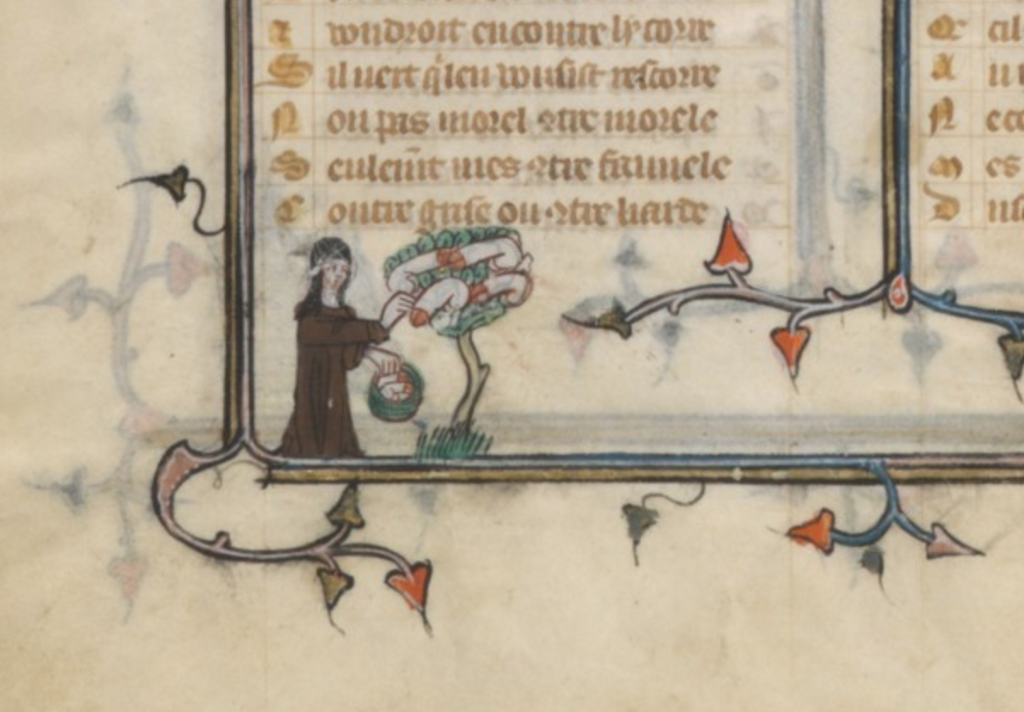 uoudroit encontre ly corre
S il uert q̃leu uousist rescorre
N on pas morel ꝯtre morele
S eulem̃t mes ꝯtre fauuele
C ontre grise ou ꝯtre liarde
cil
M es